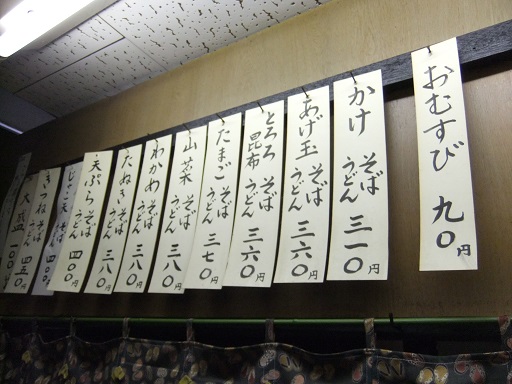 おむすび 九〇円
かけ そば うどん 三一〇円
あげ玉 そば うどん 三六〇円
とろろ昆布 そば うどん 三六〇円
たまご そば うどん 三七〇円
山菜 そば うどん 三八〇円
わかめ そば うどん 三八〇円
たぬき そば うどん 三八〇円
天ぷら そば うどん 四〇〇円
じゃこ天 そば うどん 四〇〇円
きつね そば うどん 四五〇円
大盛 一〇〇円